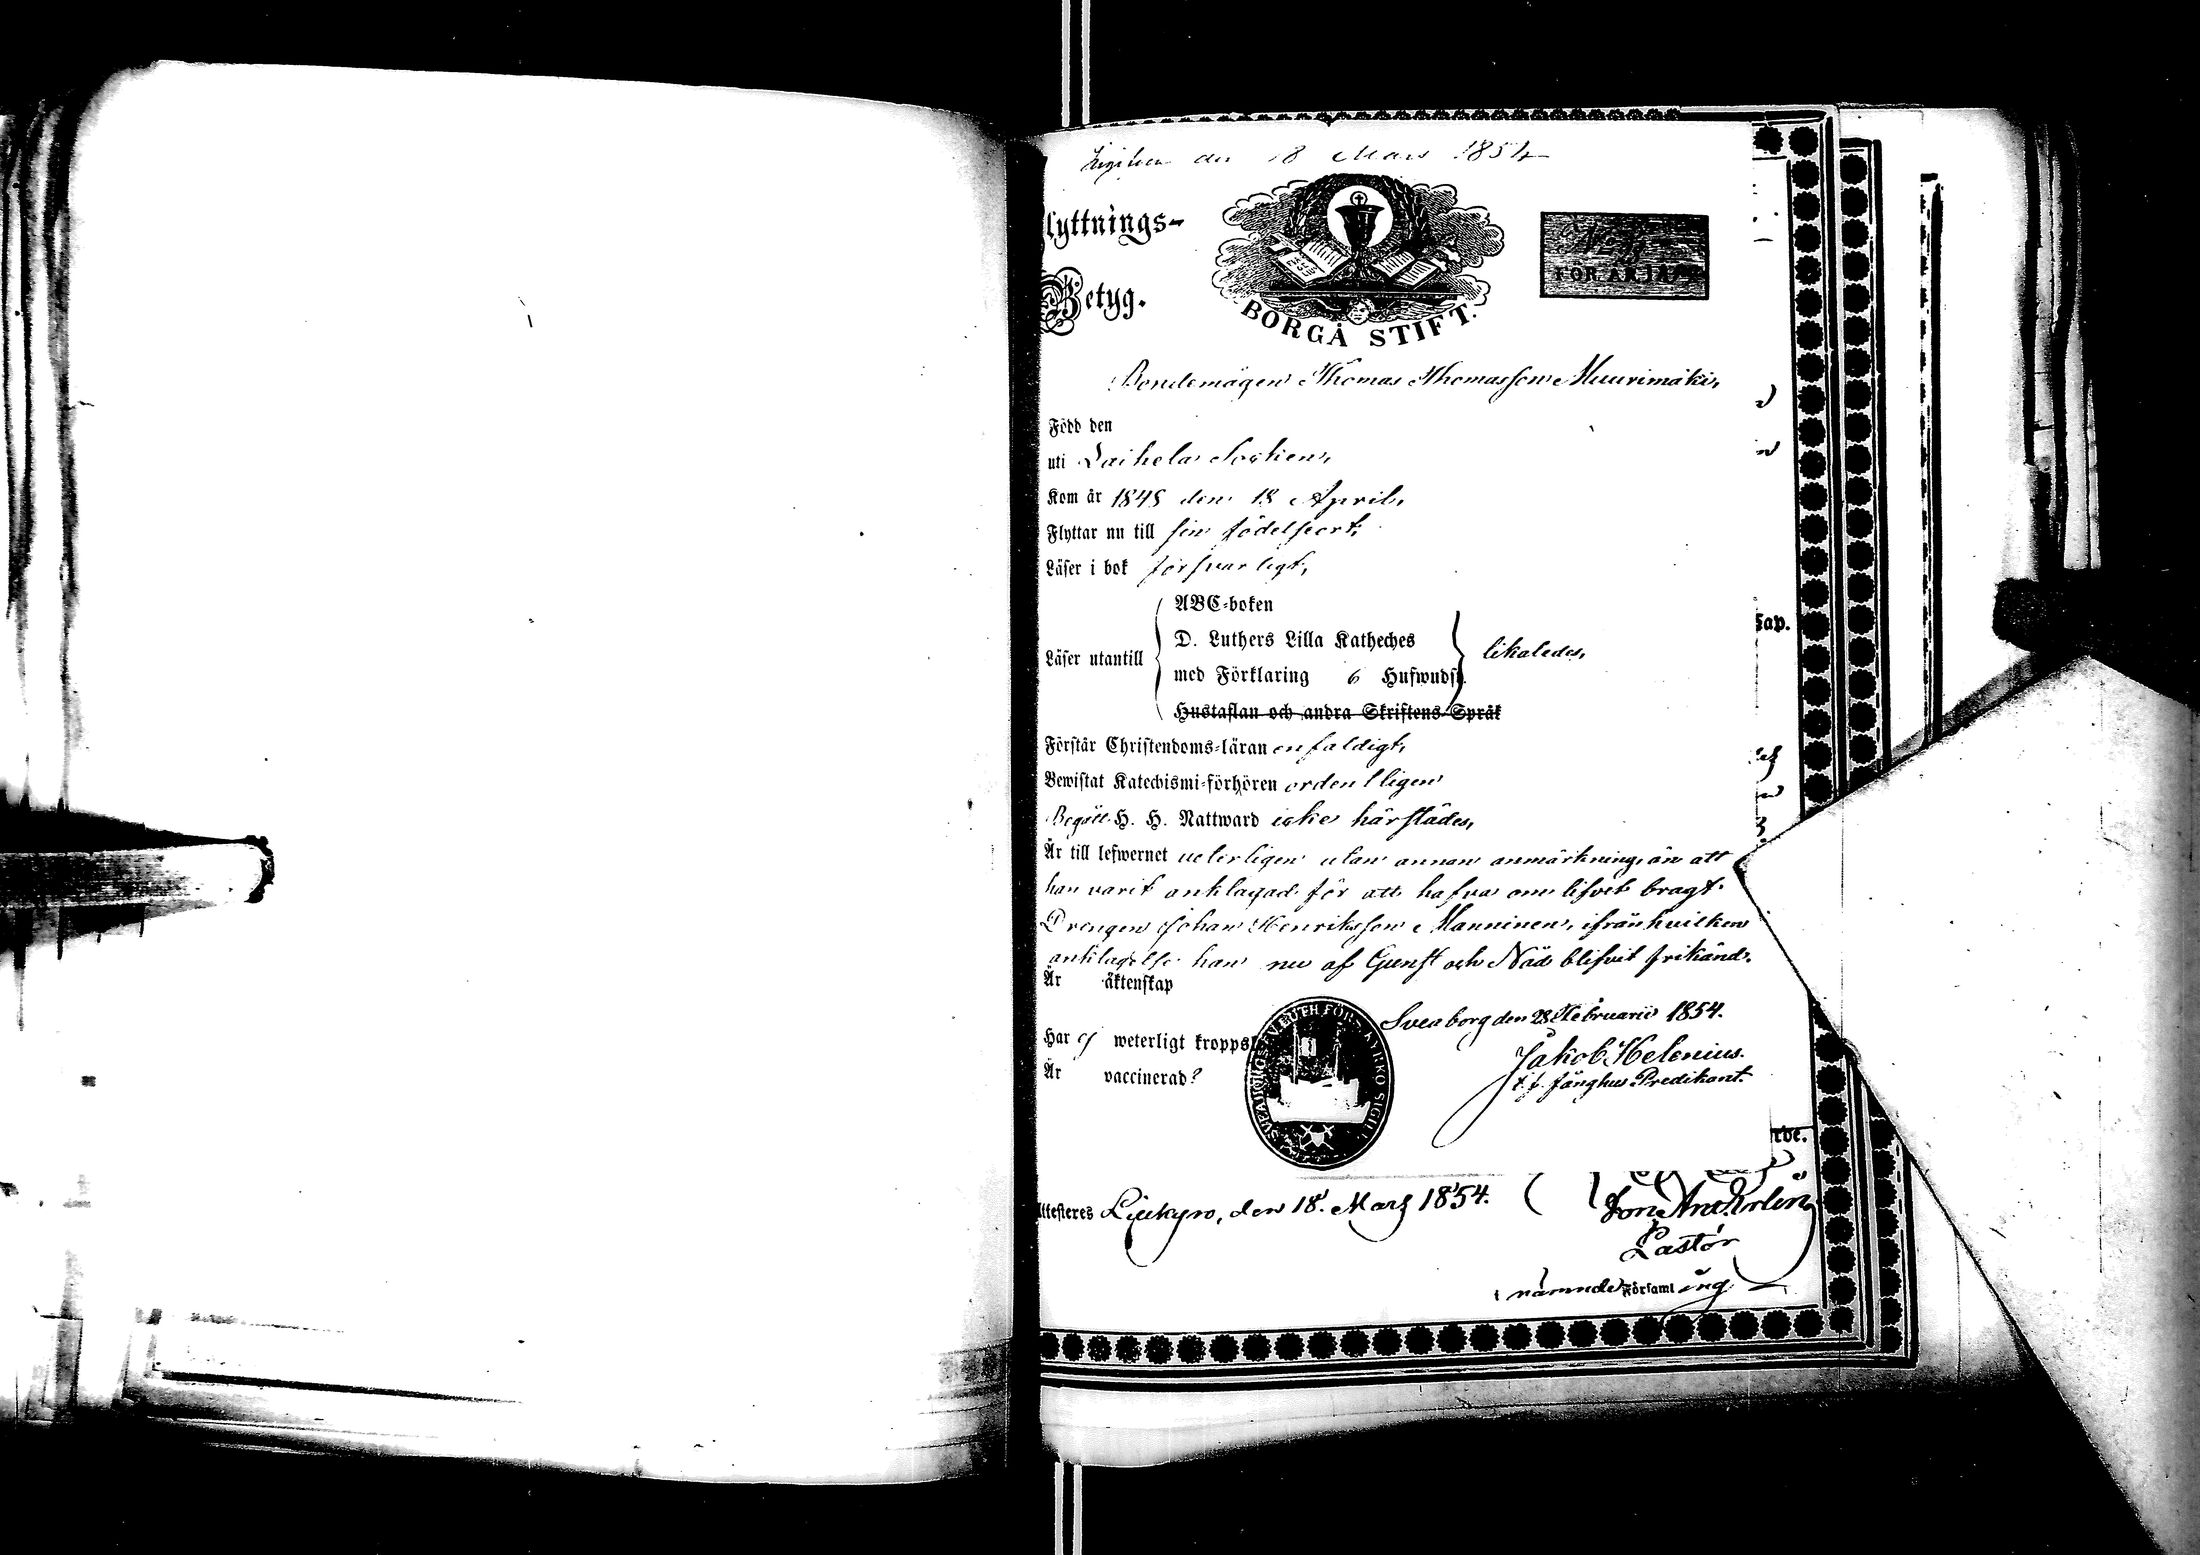 den 18 Mars 1854
Flyttnings-
Betyg.
BORGÅ STIFT.
FÖR
Bondemågen Thomas Thomasson Muurimäki,
Född den
uti Laihela Socken,
Kom år 1848 den 18 April,
Flyttar nu till sin födelseort,
Läser i bok försvarligt,
ABC-boken
D. Luthers Lilla Katheches
Läser utantill
likaledes,
med Förklaring 6 Hufwudst.
Hustaflan och andra Skriftens Språk
Förstår Christendoms-läran enfaldigt,
Bewistat Katechismi-förhören ordentligen
Begått H. H. Nattward icke härstädes,
Är till lefwernet veterligen utan annan anmärkning, än att
han varit anklagad för att hafva om lifvet bragt
Drengen Johan Henriksson Manninen, ifrån hvilken
anklagelse han nu af Gunst och Nåd blifvit frikänd.
Är äktenskap
Sveaborg den 28 Februarii 1854.
Har ej weterligt kroppsl
Jakob Helenius.
t. f. fånghus Predikant.
Är vaccinerad?
SVEABORGS EV. LUTH. FÖRS. KYRKO SIGILL
Attesteres Liukyro, den 18. Mars 1854.
Pastor
i nämnde Församling